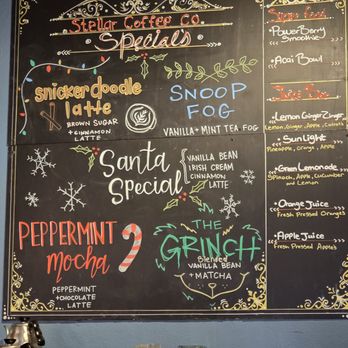 Stellar Coffee Co.
Specials
snickerdoodle
latte
BROWN SUGAR
+ CINNAMON
LATTE
SNOOP
FOG
VANILLA + MINT TEA FOG
Santa
Special
VANILLA BEAN
IRISH CREAM
CINNAMON
LATTE
PEPPERMINT
mocha
PEPPERMINT
+ CHOCOLATE
LATTE
THE
GRINCH
Blended
VANILLA BEAN
+ MATCHA
PowerBerry
Smoothie
Acai Bowl
Juice Bar
Lemon Ginger Zinger
Lemon, Ginger, Apple
Sun Light
Pineapple, Orange, Apple
Green Lemonade
Spinach, Apple, Cucumber
and Lemon
Orange Juice
Fresh Pressed Oranges
Apple Juice
Fresh Pressed Apples